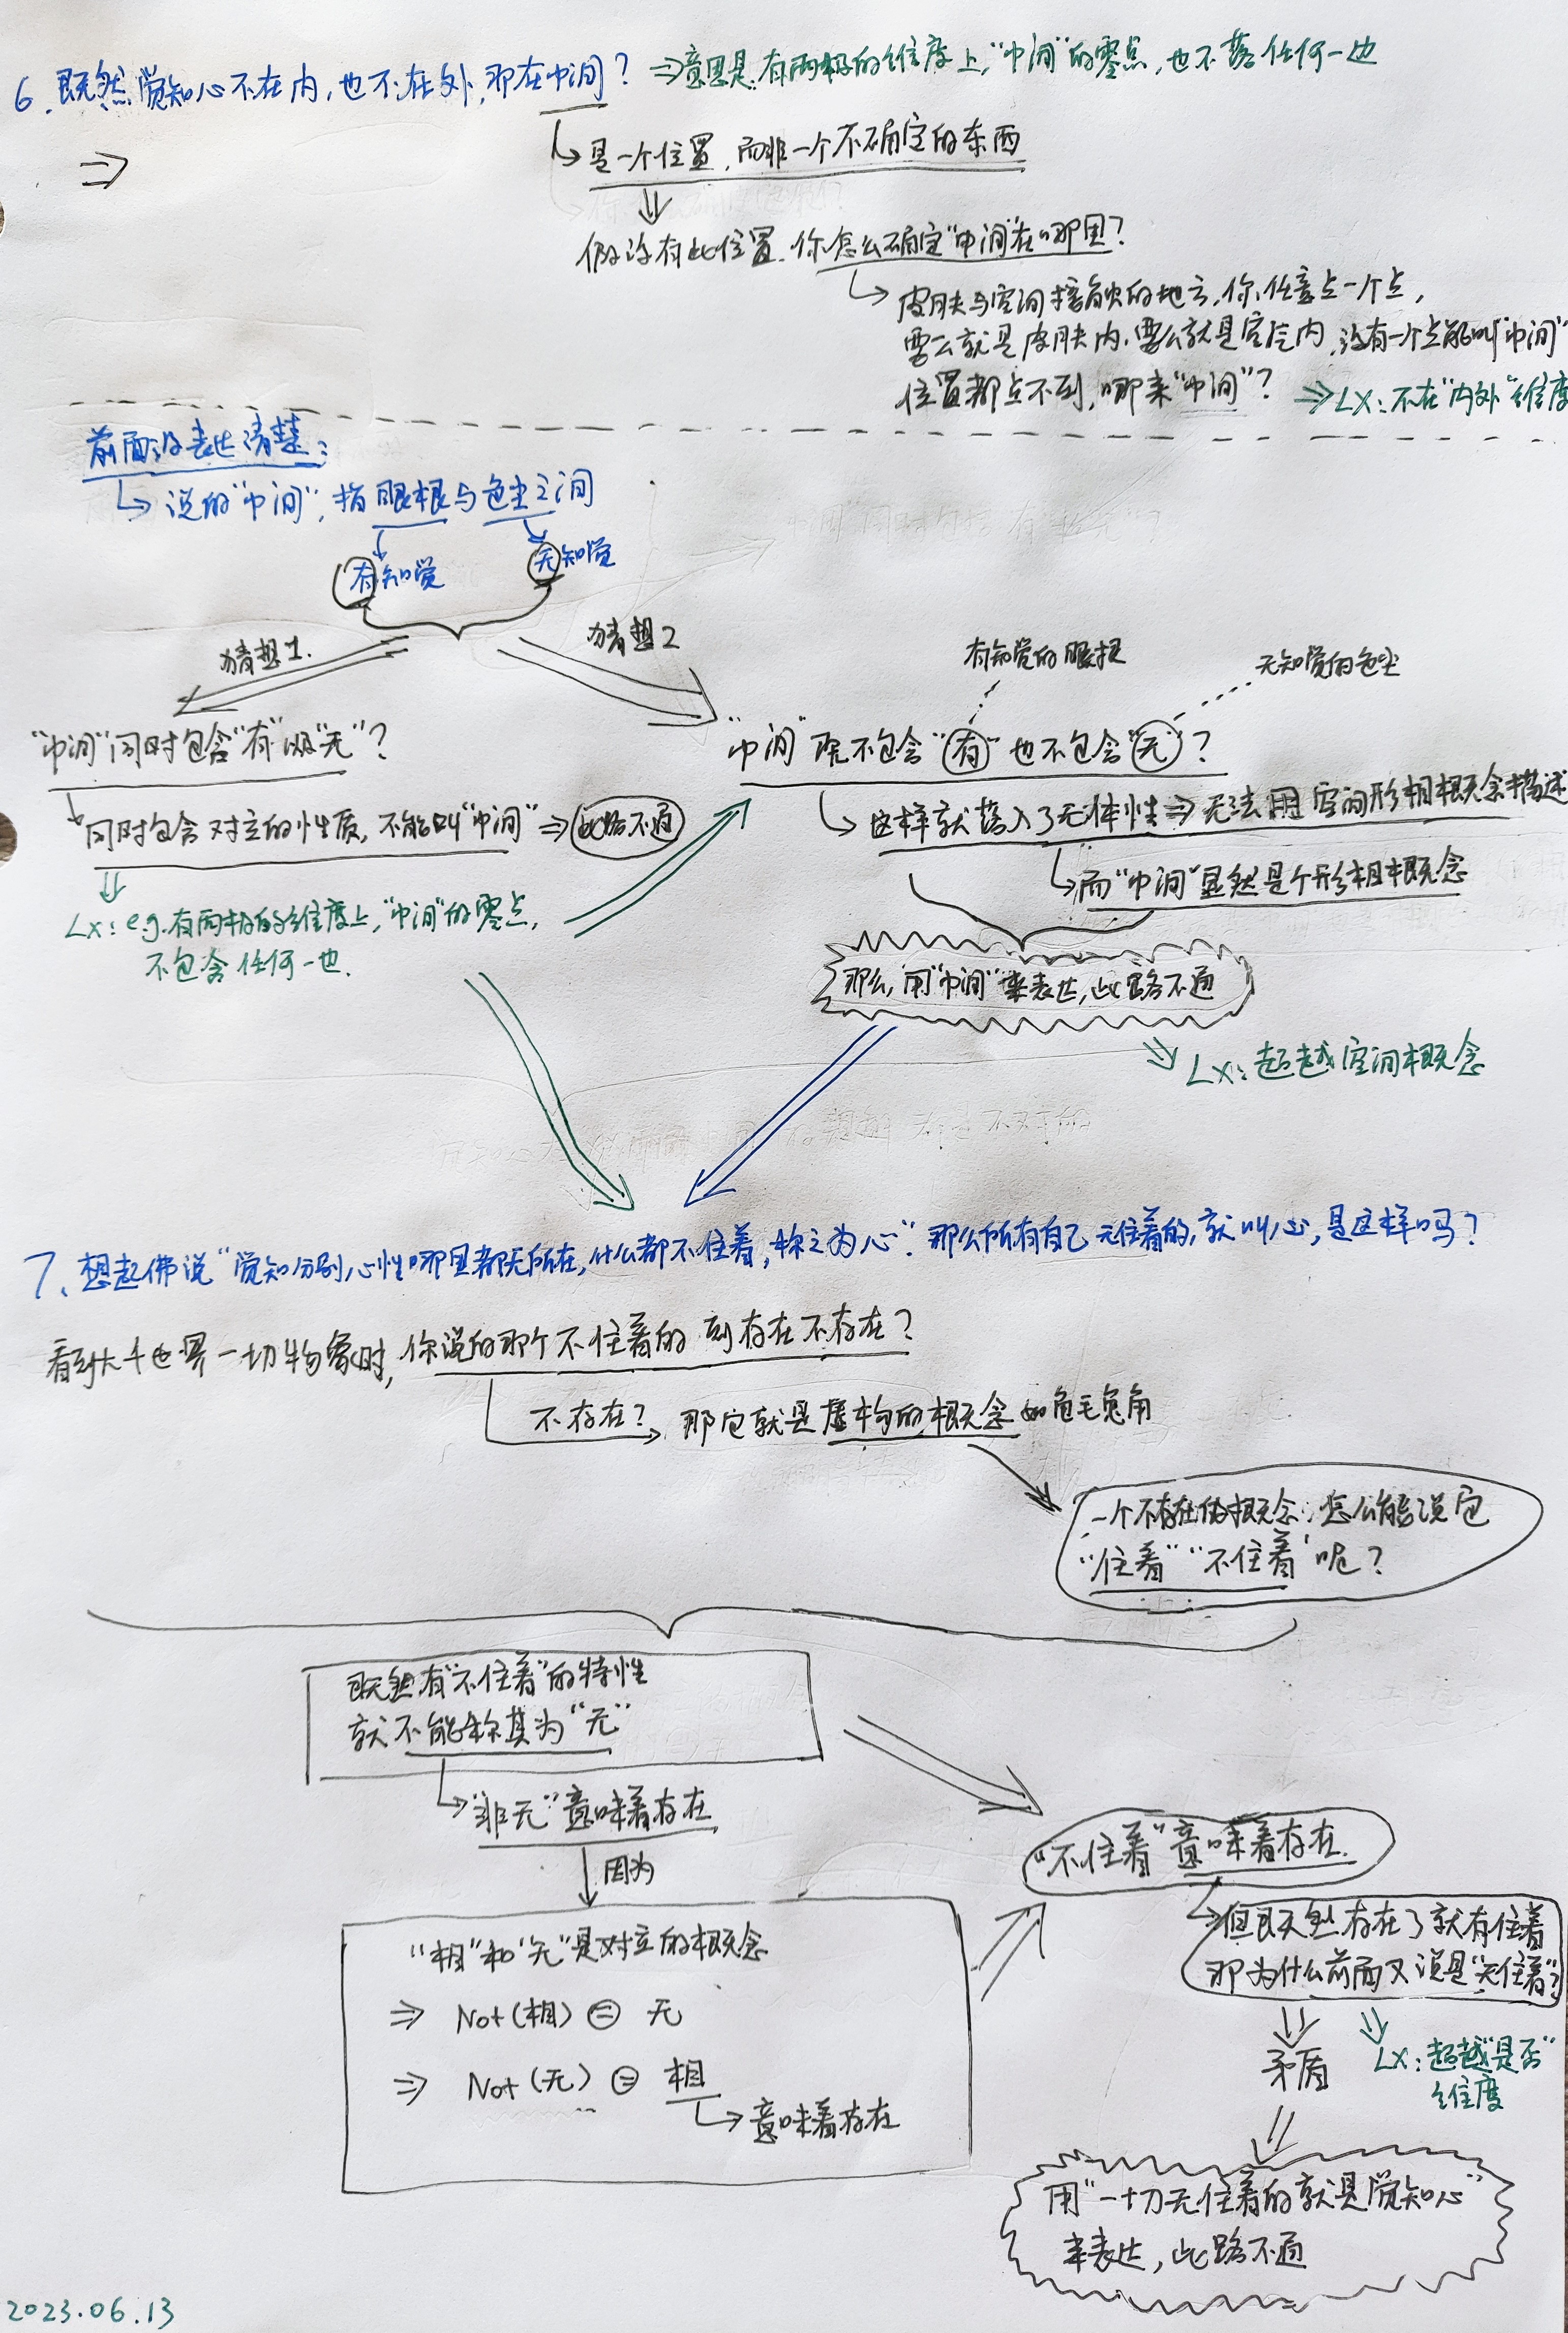 6. 既然觉知心不在内,也不在外,那在中间? ⇒意思是,有两极的维度上,“中间”的零点,也不落任何一边
⇒
↳是一个位置,而非一个不确定的东西
⇓
假设有此位置,你怎么确定“中间”在哪里?
↳皮肤与空间接触的地方,你任意点一个点,
要么就是皮肤内,要么就是空气内,没有一个点能叫“中间”
位置都点不到,哪来“中间”? ⇒LX:不在“内外”维度
前面没表达清楚:
↳说的“中间”,指眼根与色尘之间
有知觉 无知觉
猜想1. 猜想2
有知觉的眼根 无知觉的色尘
“中间”同时包含“有”以及“无”?
“中间”既不包含“有”也不包含“无”?
↳同时包含对立的性质,不能叫“中间”⇒此路不通
↳这样就落入了无体性⇒无法用空间形相概念描述
↳而“中间”显然是个形相概念
⇓
LX: e.g.有两极的维度上,“中间”的零点,
不包含任何一边.
那么,用“中间”来表达,此路不通
⇒LX:超越空间概念
7、想起佛说“觉知分别心性哪里都无所在,什么都不住着,称之为心”.那么所有自己无住着的,就叫心,是这样吗?
看到大千世界一切物象时,你说的那个不住着的 到存在不存在?
不存在?→那它就是虚构的概念 如龟毛兔角
一个不存在的概念,怎么能说它
“住着”“不住着”呢?
既然有“不住着”的特性
就不能称其为“无”
↳“非无”意味着存在
↓因为
“不住着”意味着存在.
↳但既然存在了就有住着
那为什么前面又说是“无住着”?
“相”和“无”是对立的概念
⇒ Not(相) = 无
⇒ Not(无) = 相
↳意味着存在
⇓
矛盾
⇓
LX:超越“是否”
维度
⇓
用“一切无住着的就是觉知心”
来表达,此路不通
2023.06.13